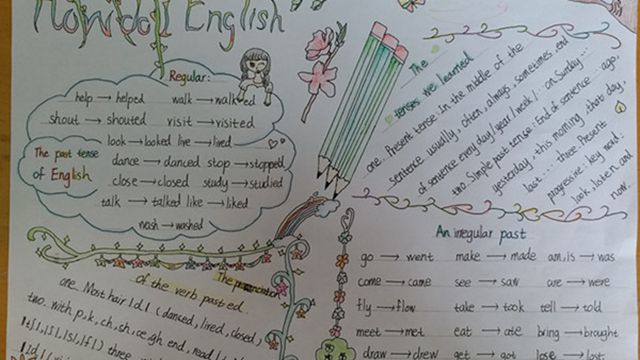 How do I English
Regular:
help → helped walk → walked
shout → shouted visit → visited
look → looked live → lived
The past tense
of English
dance → danced stop → stopped
close → closed study → studied
talk → talked like → liked
wash → washed
The
tenses we learned
one. Present tense: In the middle of the
sentence usually, often, always, sometimes, end
of sentence every day/year/week/... on Sunday...
two. Simple past tense: End of sentence ago,
yesterday, this morning, that day,
last... three. Present
progressive: key word:
look, listen and
now.
The
of the verb past ed
one. Most hair /d/ (danced, lired, closed,
two. with, p, k, ch, sh, ce, gh end, read
three
An irregular past
go → went make → made am, is → was
come → came see → saw are → were
fly → flow take → took tell → told
meet → met eat → ate bring → brought
draw → drew get → got lose → lost